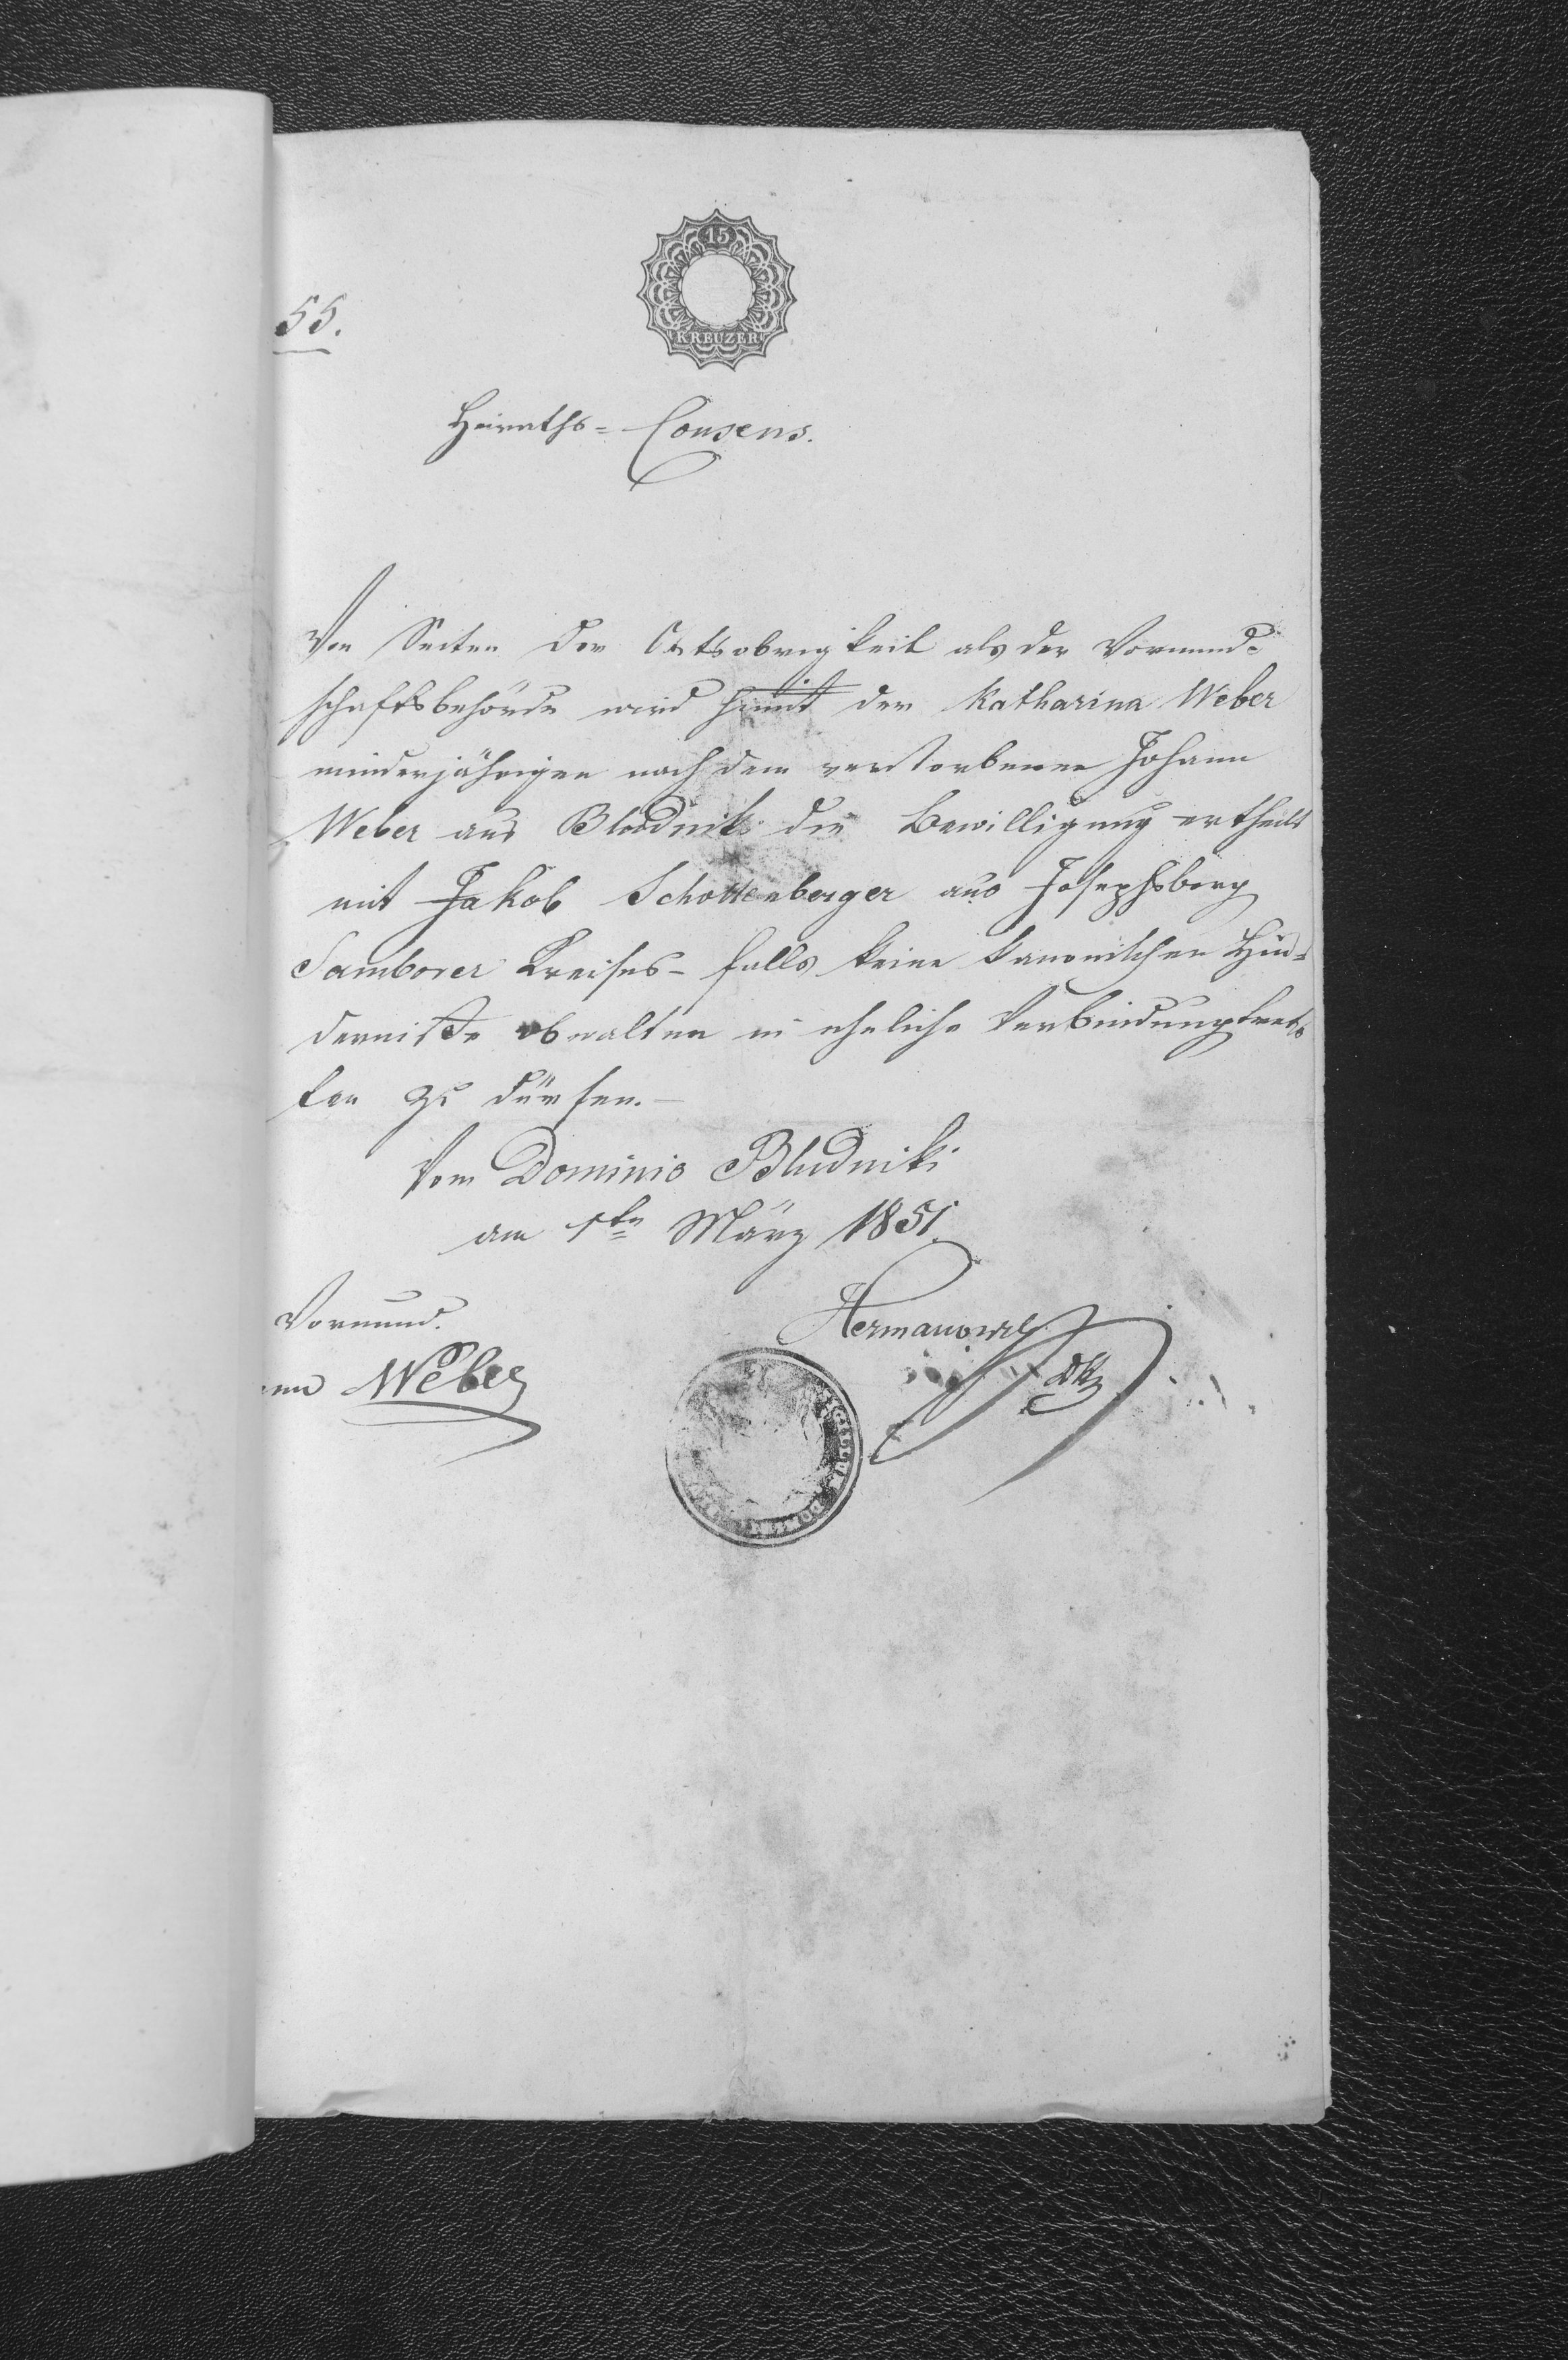 15
KREUZER
55.
Heiraths = Consens.
Von Seiten der Ortsobrigkeit als der Vormund=
schaftsbehörde wird hiemit der Katharina Weber
minderjährigen nach dem verstorbenen Johann
Weber aus Bludniki die Bewilligung ertheilt
mit Jakob Schottenberger aus Josephsberg
Samborer Kreises – falls keine kanonischen Hin=
derniße obwalten in eheliche Verbindung tret=
ten zu dürfen. –
Vom Dominio Bludniki
am 1ten März 1851.
Vormund.
Hermanowicz
Weber